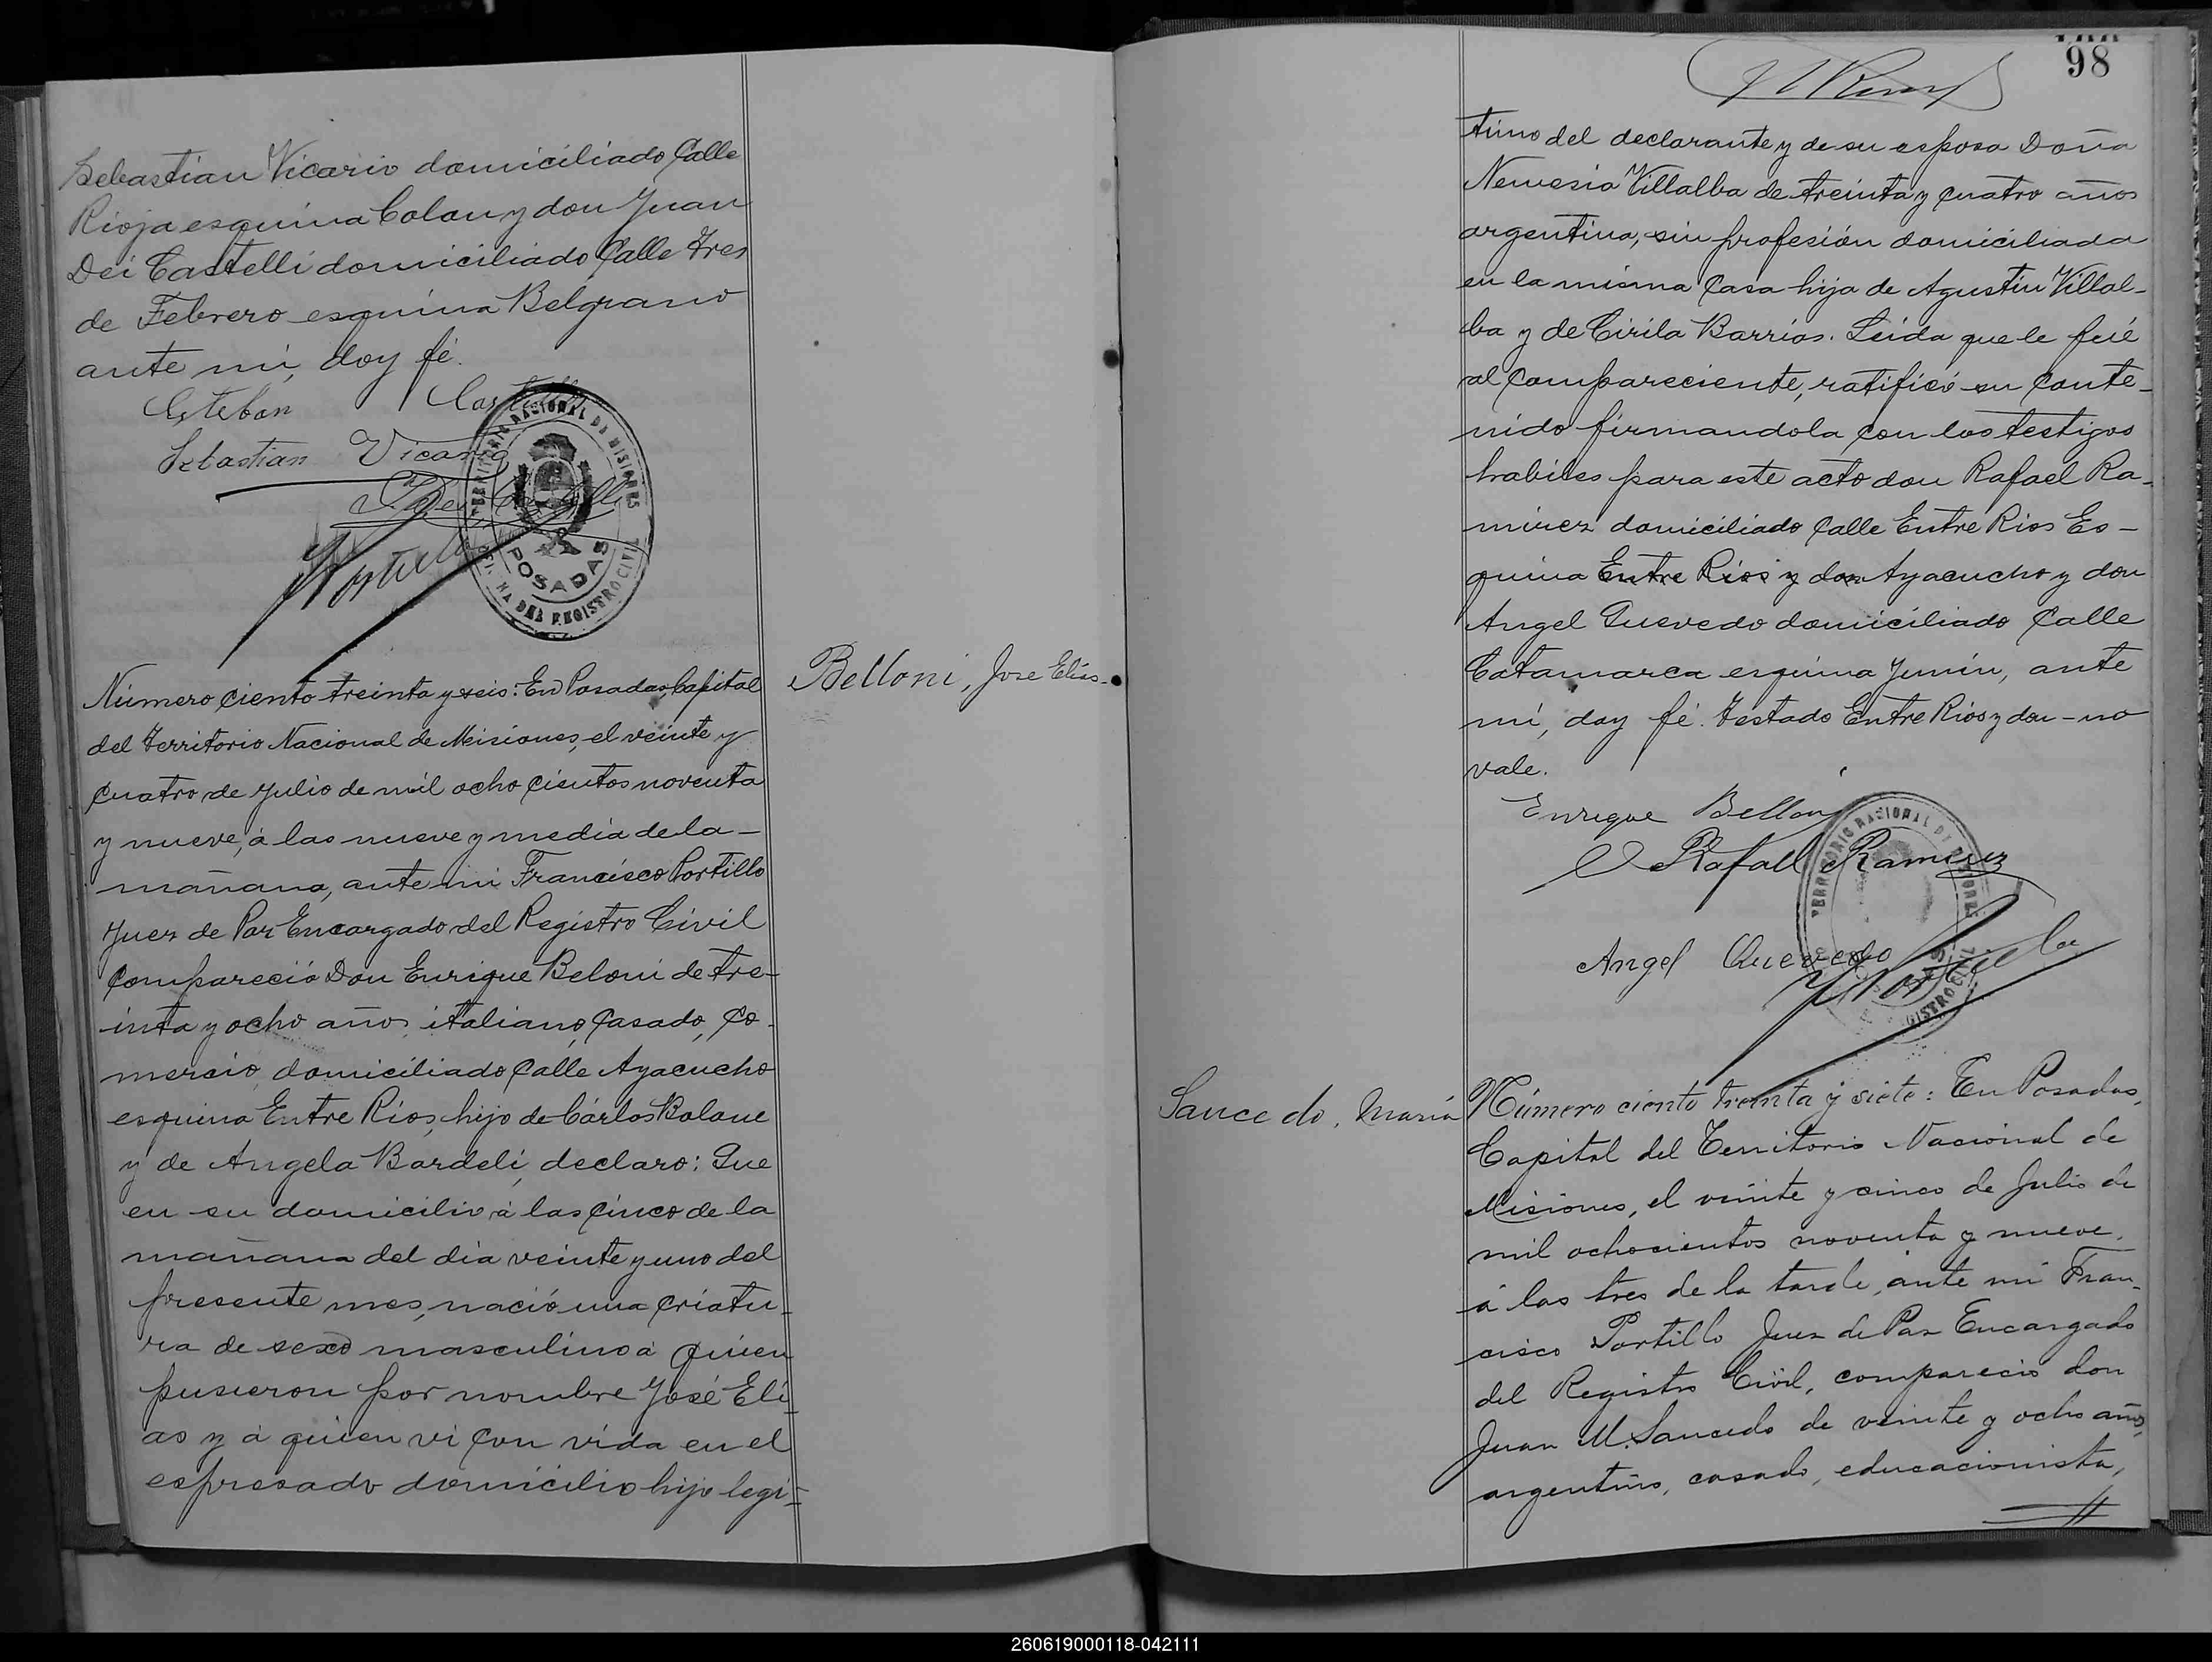 Sebastian Vicario domiciliado Calle
Rioja esquina Colon y don Juan
Dei Castelli domiciliado Calle Tres
de Febrero esquina Belgrano
ante mi, doy fé.
Esteban Castelli
Sebastian Vicario
TERRITORIO NACIONAL DE MISIONES
POSADAS
OFICINA DEL REGISTRO CIVIL
Número ciento treinta y seis: En Posadas, Capital
del Territorio Nacional de Misiones, el veinte y
cuatro de Julio de mil ocho cientos noventa
y nueve, á las nueve y media de la
mañana, ante mi Francisco Portillo
Juez de Paz Encargado del Registro Civil
compareció Don Enrique Beloni de tre-
inta y ocho años, italiano, casado, co-
mercio, domiciliado Calle Ayacucho
esquina Entre Rios, hijo de Cárlos Bolone
y de Angela Bardeli, declaro: Que
en su domicilio á las cinco de la
mañana del dia veinte y uno del
presente mes, nació una criatu-
ra de sexo masculino á quien
pusieron por nombre José Eli-
as y á quien vi con vida en el
espresado domicilio hijo legi-
Belloni, Jose Elias.
98
timo del declarante y de su esposa Doña
Nemesia Villalba de treinta y cuatro años
argentina, sin profesión domiciliada
en la misma casa hija de Agustin Villal-
ba y de Cirila Barrios. Leida que le fué
al compareciente, ratificó su conte-
nido firmandola con los testigos
habiles para este acto don Rafael Ra-
mirez domiciliado Calle Entre Rios Es-
quina Entre Rios y don Ayacucho y don
Angel Quevedo domiciliado Calle
Catamarca esquina Junin, ante
mí, doy fé. Testado Entre Rios y don - no
vale.
Enrique Belloni
Rafael Ramirez
Angel Quevedo
Saucedo, Maria
Número ciento treinta y siete: En Posadas,
Capital del Territorio Nacional de
Misiones, el veinte y cinco de Julio de
mil ochocientos noventa y nueve,
á las tres de la tarde, ante mi Fran-
cisco Portillo Juez de Paz Encargado
del Registro Civil, compareció don
Juan M. Saucedo de veinte y ocho años,
argentino, casado, educacionista,
260619000118-042111